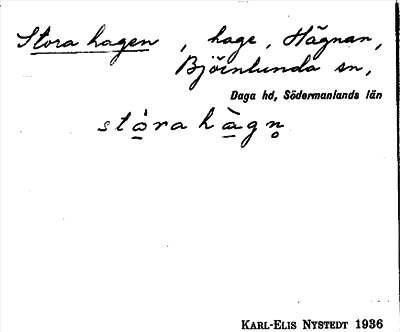 Stora hagen, hage, Hägnan,
Björnlunda sn,
Daga hd, Södermanlands län
stò̱ra hà̱gn̥
KARL-ELIS NYSTEDT 1936